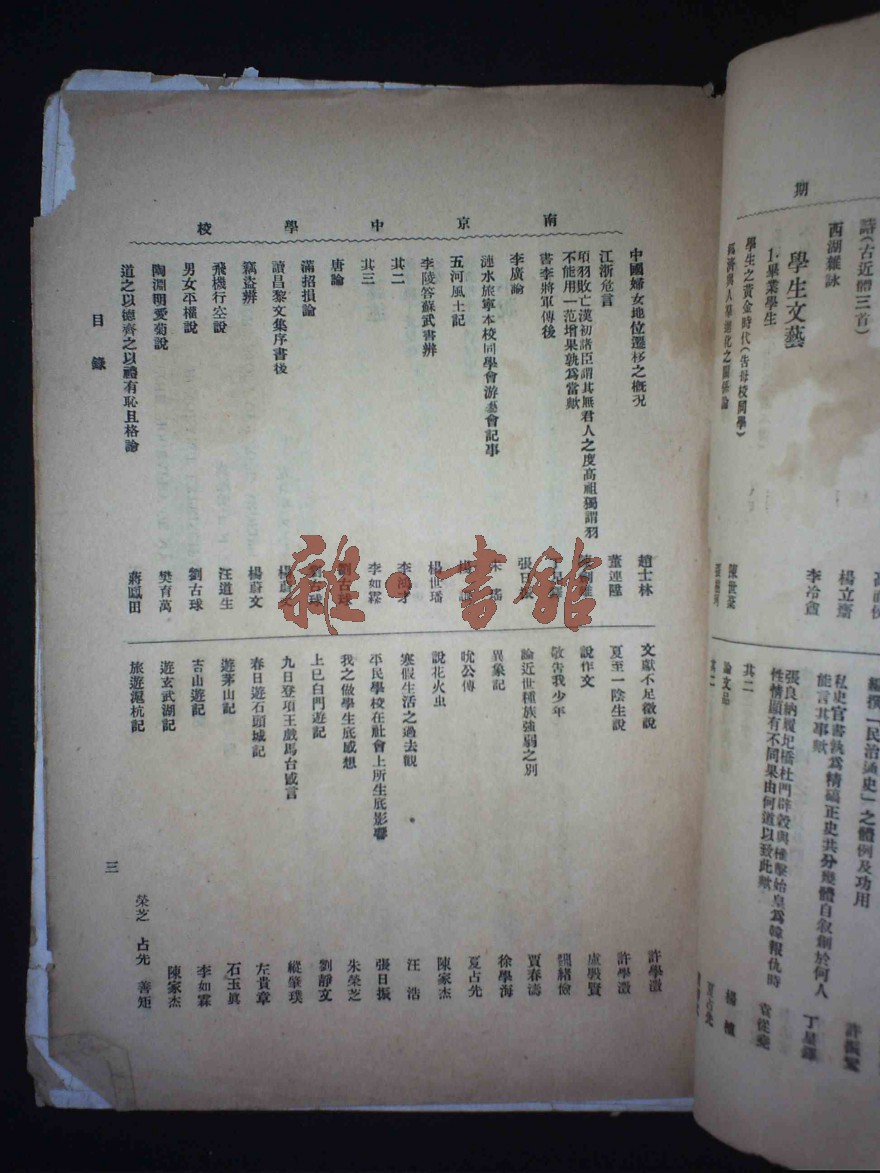 期
詩(古近體三首)
西湖雜詠
楊立齋
李冷盦
學生文藝
1.畢業學生
學生之黃金時代(告母校同學)
陳世棻
編撰「民治通史」之體例及功用
許振鸞
私史官書孰為精確正史共分幾體自敘創於何人
能言其事歟
丁星鐸
張良納履圯橋杜門辟穀與椎擊始皇為韓報仇時
性情顯有不同果由何道以致此歟
袁從堯
其二
論文品
其二
南京中學校
中國婦女地位遷移之概況
趙士林
江浙危言
董連陞
項羽敗亡漢初諸臣謂其無君人之度高祖獨謂羽
不能用一范增果孰為當歟
書李將軍傳後
李廣論
張日振
漣水旅寧本校同學會游藝會記事
五河風土記
李陵答蘇武書辨
楊世璠
其二
李鴻才
其三
李如霖
唐論
劉古球
滿招損論
劉古球
讀昌黎文集序書後
楊蔚文
竊盜辨
楊蔚文
飛機行空說
汪道生
男女平權說
劉古球
陶淵明愛菊說
樊育萬
道之以德齊之以禮有恥且格論
蔣鳳田
文獻不足徵說
許學澂
夏至一陰生說
許學澂
說作文
盧毅賢
敬告我少年
魏緒儉
論近世種族強弱之別
賈春濤
異象記
徐學海
吮公傳
夏占先
說花火虫
陳家杰
寒假生活之過去觀
汪浩
平民學校在社會上所生底影響
張日振
我之做學生底感想
朱榮芝
上巳白門遊記
劉靜文
九日登項王戲馬台感言
縱肇璞
春日遊石頭城記
左貴章
遊茅山記
石玉眞
吉山遊記
李如霖
遊玄武湖記
陳家杰
旅遊滬杭記
榮芝 占先 善矩
目錄
三
雜·書館